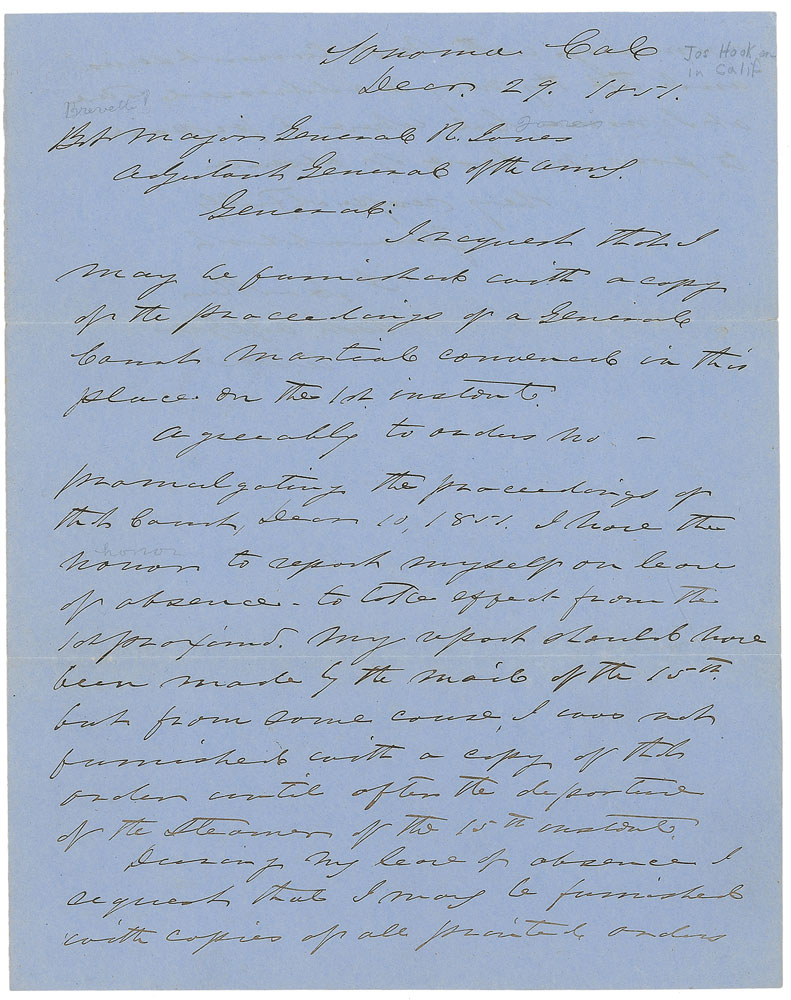 Sonoma Cal
Jos Hooker
in Calif
Decr. 29. 1851.
Brevett?
Jones
Bvt Major General R. Jones
Adjutant General of the Army.
General.
I request that I
may be furnished with a copy
of the proceedings of a General
Court Martial convened in this
place on the 1st. instant.
Agreeably to orders No –
promulgating the proceedings of
that Court, Decr 10, 1851. I have the
honor
honor to report myself on leave
of absence - to take effect from the
1st proximo. My report should have
been made by the mail of the 15th.
but from some cause, I was not
furnished with a copy of that
order until after the departure
of the Steamer of the 15th instant.
During my leave of absence I
request that I may be furnished
with copies of all printed orders